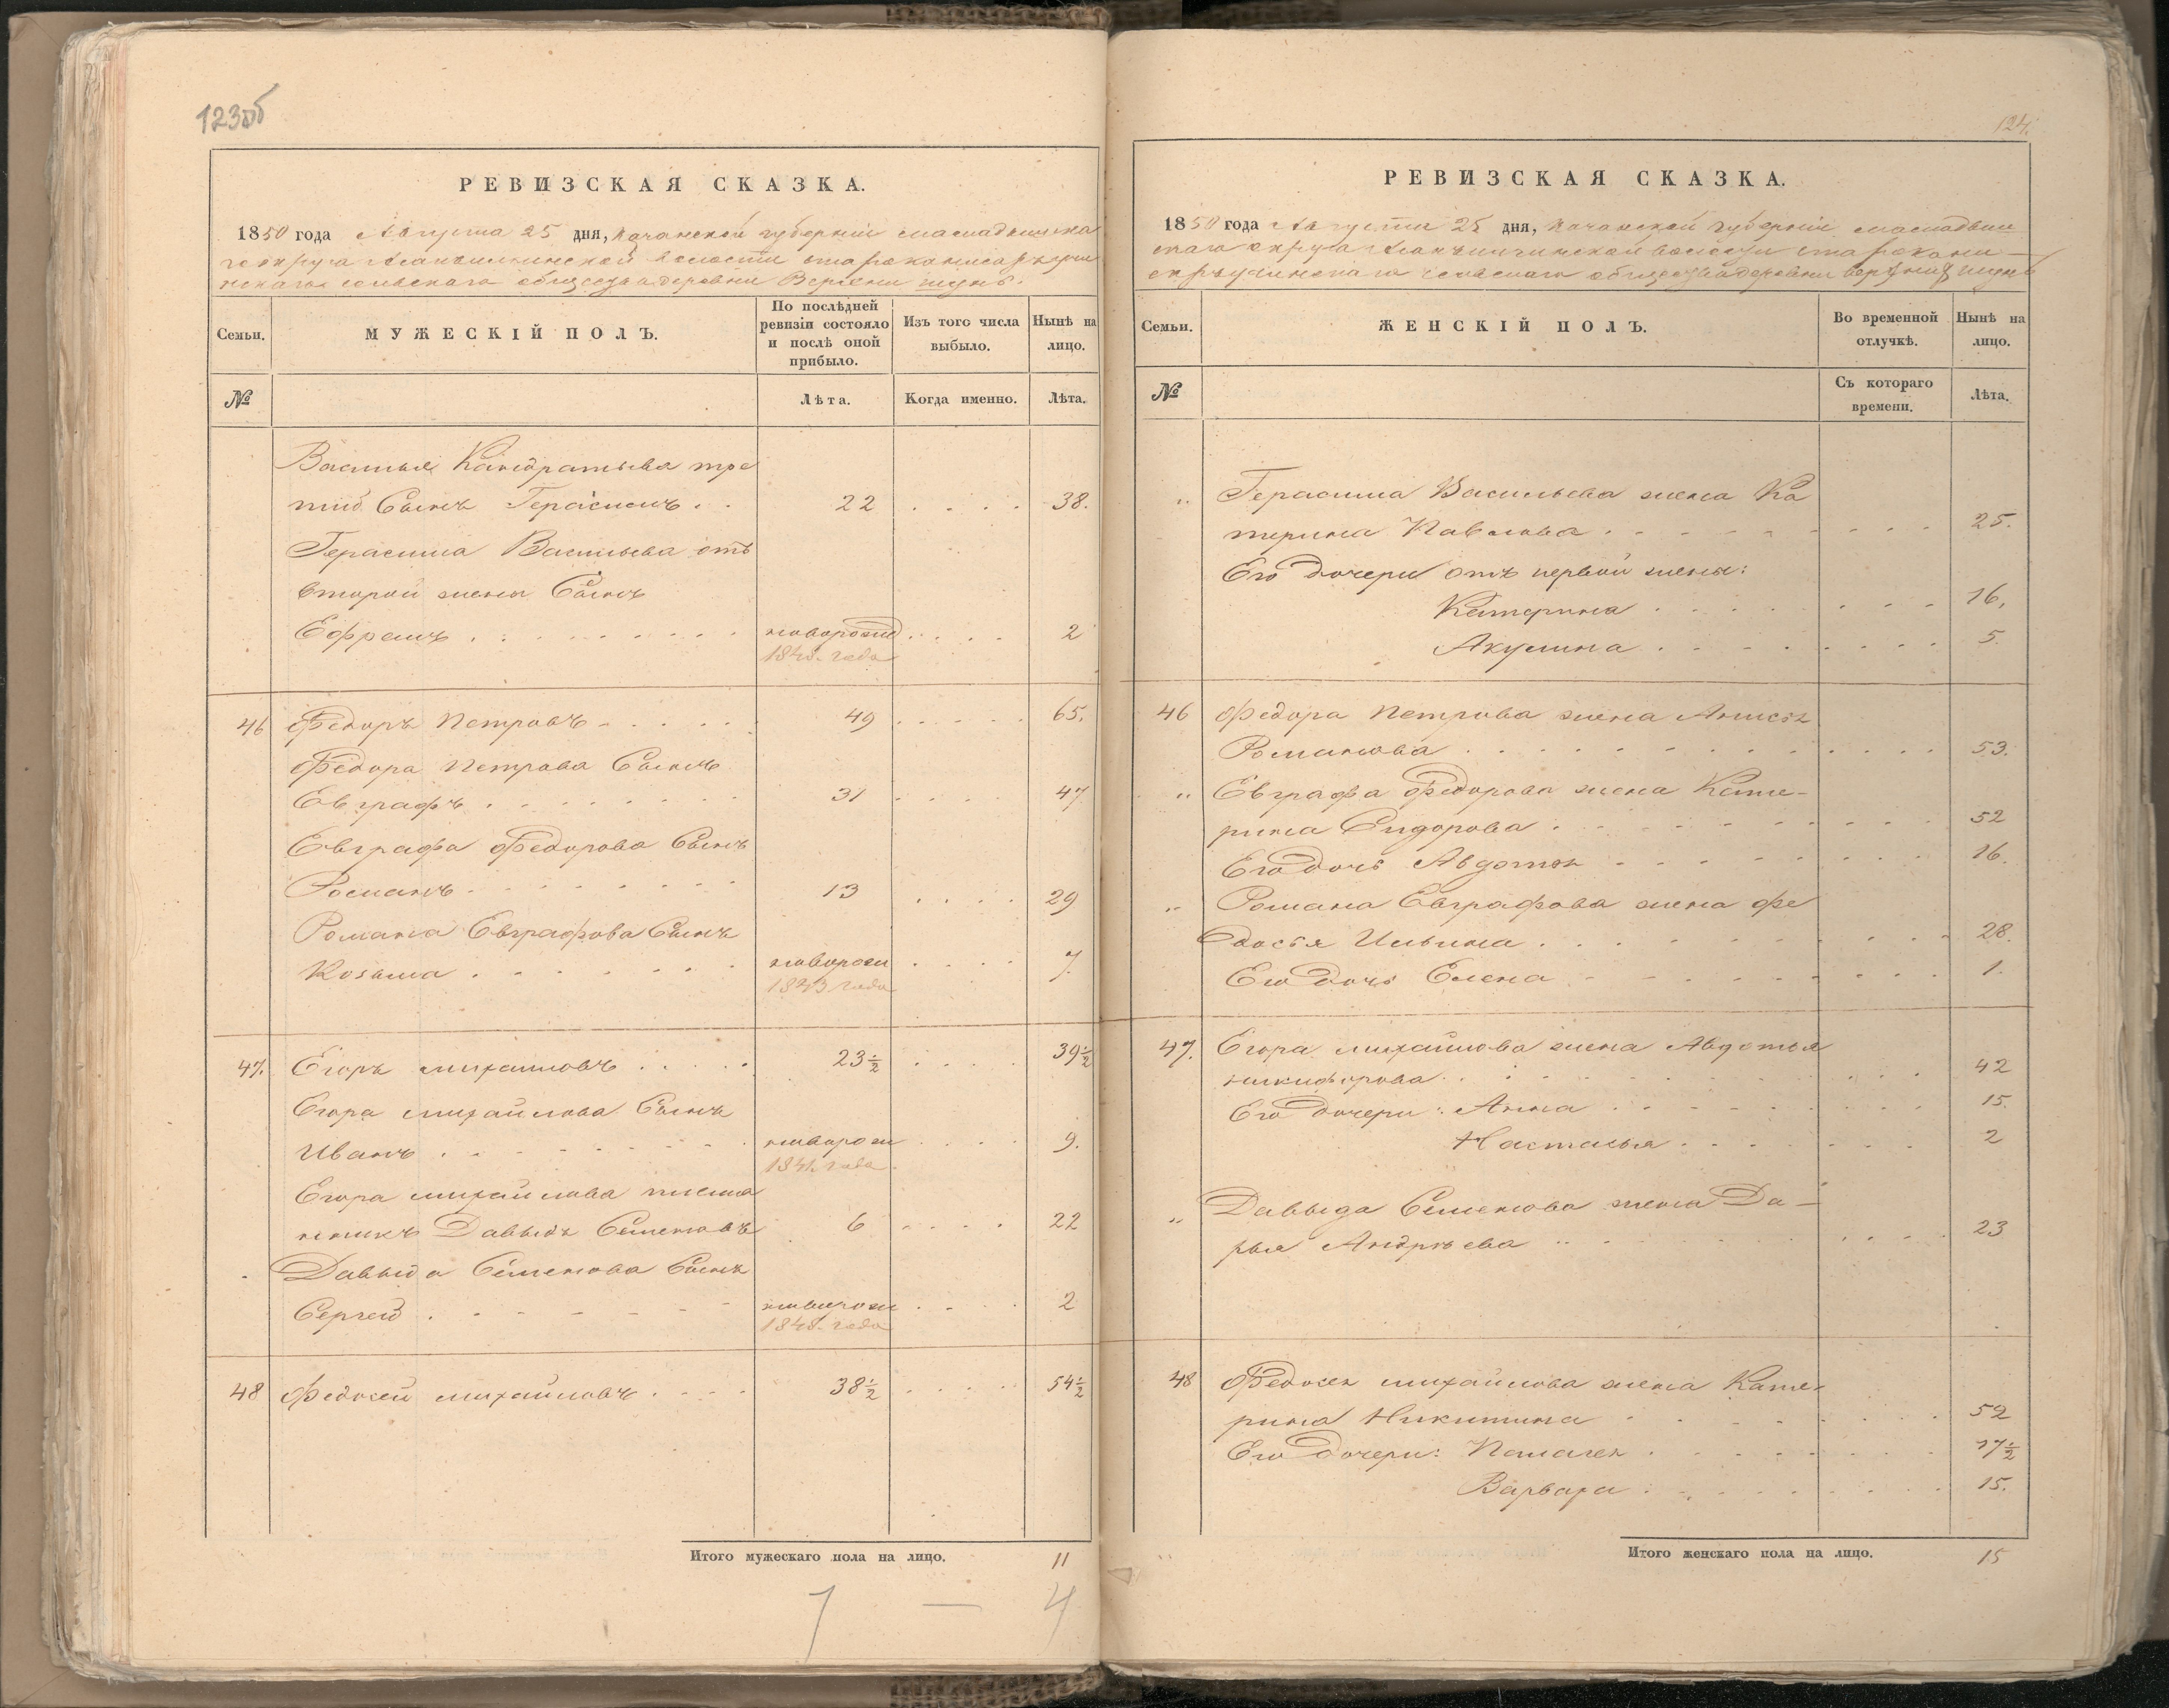 123об
РЕВИЗСКАЯ СКАЗКА.
1850 года Августа 25 дня, Казанской губерніи мамадышска
го округа волости
сельскаго общества деревни Верхни шунь.
Семьи.
МУЖЕСКІЙ ПОЛЪ.
По послѣдней ревизіи состояло и послѣ оной прибыло.
Изъ того числа выбыло.
Нынѣ на лицо.
№
Лѣта.
Когда именно.
Лѣта.
Василья Кандратьева тре
тій Сынъ Герасимъ . . 22 . . . . 38.
Герасима Васильева отъ
второй жены Сынъ
Ефремъ . . . . . . . . новорожд . . . . 2
1848. года
46 Федоръ Петровъ - . . . . 49 . . . . . 65.
Федора Петрова Сынъ
Евграфъ . . . . . . . 31 . . . . 47
Евграфа Федорова Сынъ
Романъ . . . . . . . 13 . . . . 29
Романа Евграфова Сынъ
Козьма . . . . . . . новорож . . . . 7.
1843 года
47. Егоръ михайловъ . . . . . 23 1/2 . . . . 39 1/2
Егора михайлова Сынъ
Иванъ . . . . . . . . новорож . . . . 9.
1841. года
Егора михайлова племя
нникъ Давыдъ Семеновъ 6 . . . . 22
Давыда Семенова Сынъ
Сергей . . . . . . . новорож . . . . 2
1848. года
48 Федосей михайловъ . . . . 38 1/2 . . . . . 54 1/2
Итого мужескаго пола на лицо. 11
7 — 4
124.
РЕВИЗСКАЯ СКАЗКА.
1850 года Августа 25 дня, Казанской губерніи мамадыш
скаго округа волости
сельскаго общества деревни верхній шунь
Семьи.
ЖЕНСКІЙ ПОЛЪ.
Во временной отлучкѣ.
Нынѣ на лицо.
№
Съ котораго времени.
Лѣта.
„ Герасима Васильева жена Ка
терина Павлова . . . . . . . . . 25.
Его дочери отъ первой жены:
Катерина . . . . . . . . 16.
Акулина . . . . . . . . 5.
46 Федора Петрова жена Анисья
Романова . . . . . . . . . . . . 53.
„ Евграфа Федорова жена Кате-
рина Сидорова . . . . . . . . . . 52
Его дочь Авдотья . . . . . . . . . 16.
„ Романа Евграфова жена Фе
досья Ильина . . . . . . . . . . 28.
Его дочь Елена . . . . . . . . . 1.
47. Егора михайлова жена Авдотья
никифорова . . . . . . . . . . 42
Его дочери: Анна . . . . . . . . . 15.
Настасья . . . . . . . 2
„ Давыда Семенова жена Да-
рья Андрѣева . . . . . . . . . . 23
48 Федосея михайлова жена Кате-
рина Никитина . . . . . . . . . 52
Его дочери: Пелагея . . . . . . . . 17 1/2
Варвара . . . . . . . . 15.
Итого женскаго пола на лицо. 15